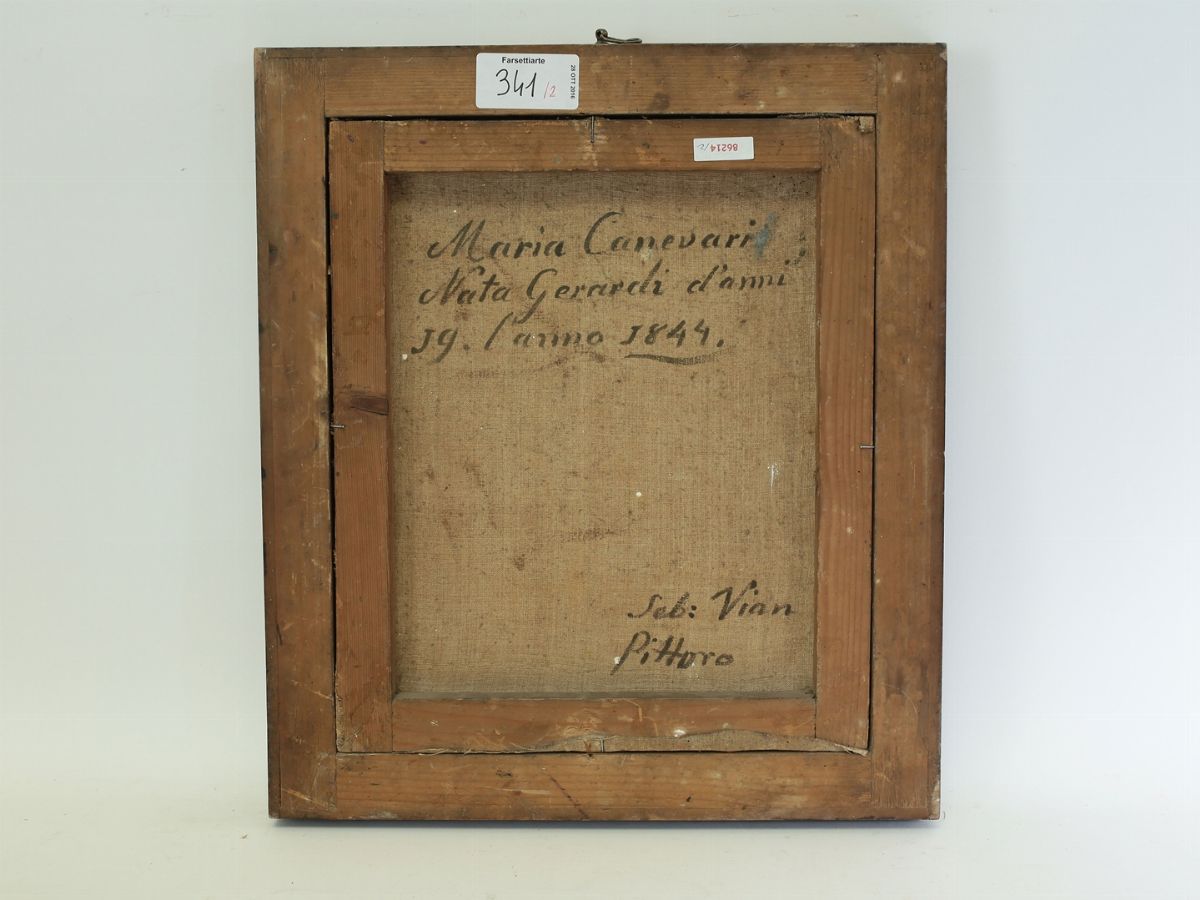 Farsettiarte
341/2
28 OTT 2016
86214/2
Maria Canevari
Nata Gerardi d'anni
19. l'anno 1844.
Seb: Vian
Pittoro